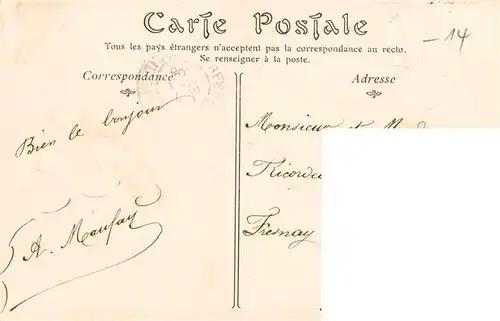 Carte Postale
Tous les pays étrangers n'acceptent pas la correspondance au recto.
Se renseigner à la poste.
Correspondance
Adresse
14
Bien le bonjour
A. Maufay
Monsieur et
Fresnay